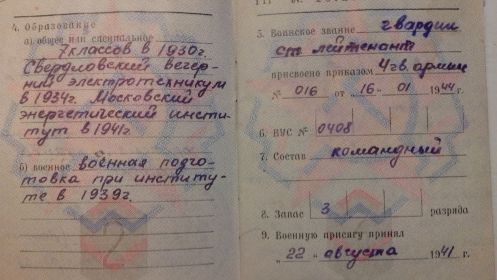 4. Образование
а) общее или специальное
7 классов в 1930г.
Свердловский вечер-
ний электротехникум
в 1934г. Московский
энергетический инсти-
тут в 1941г.
б) военное военная подго-
товка при институ-
те в 1939г.
2
5. Воинское звание гвардии
ст. лейтенант
присвоено приказом 4 гв. армии
№ 016 от "16" 01 1944 г.
6. ВУС № 0408
7. Состав командный
8. Запас 3 разряда
9. Военную присягу принял
"22" августа 1941 г.